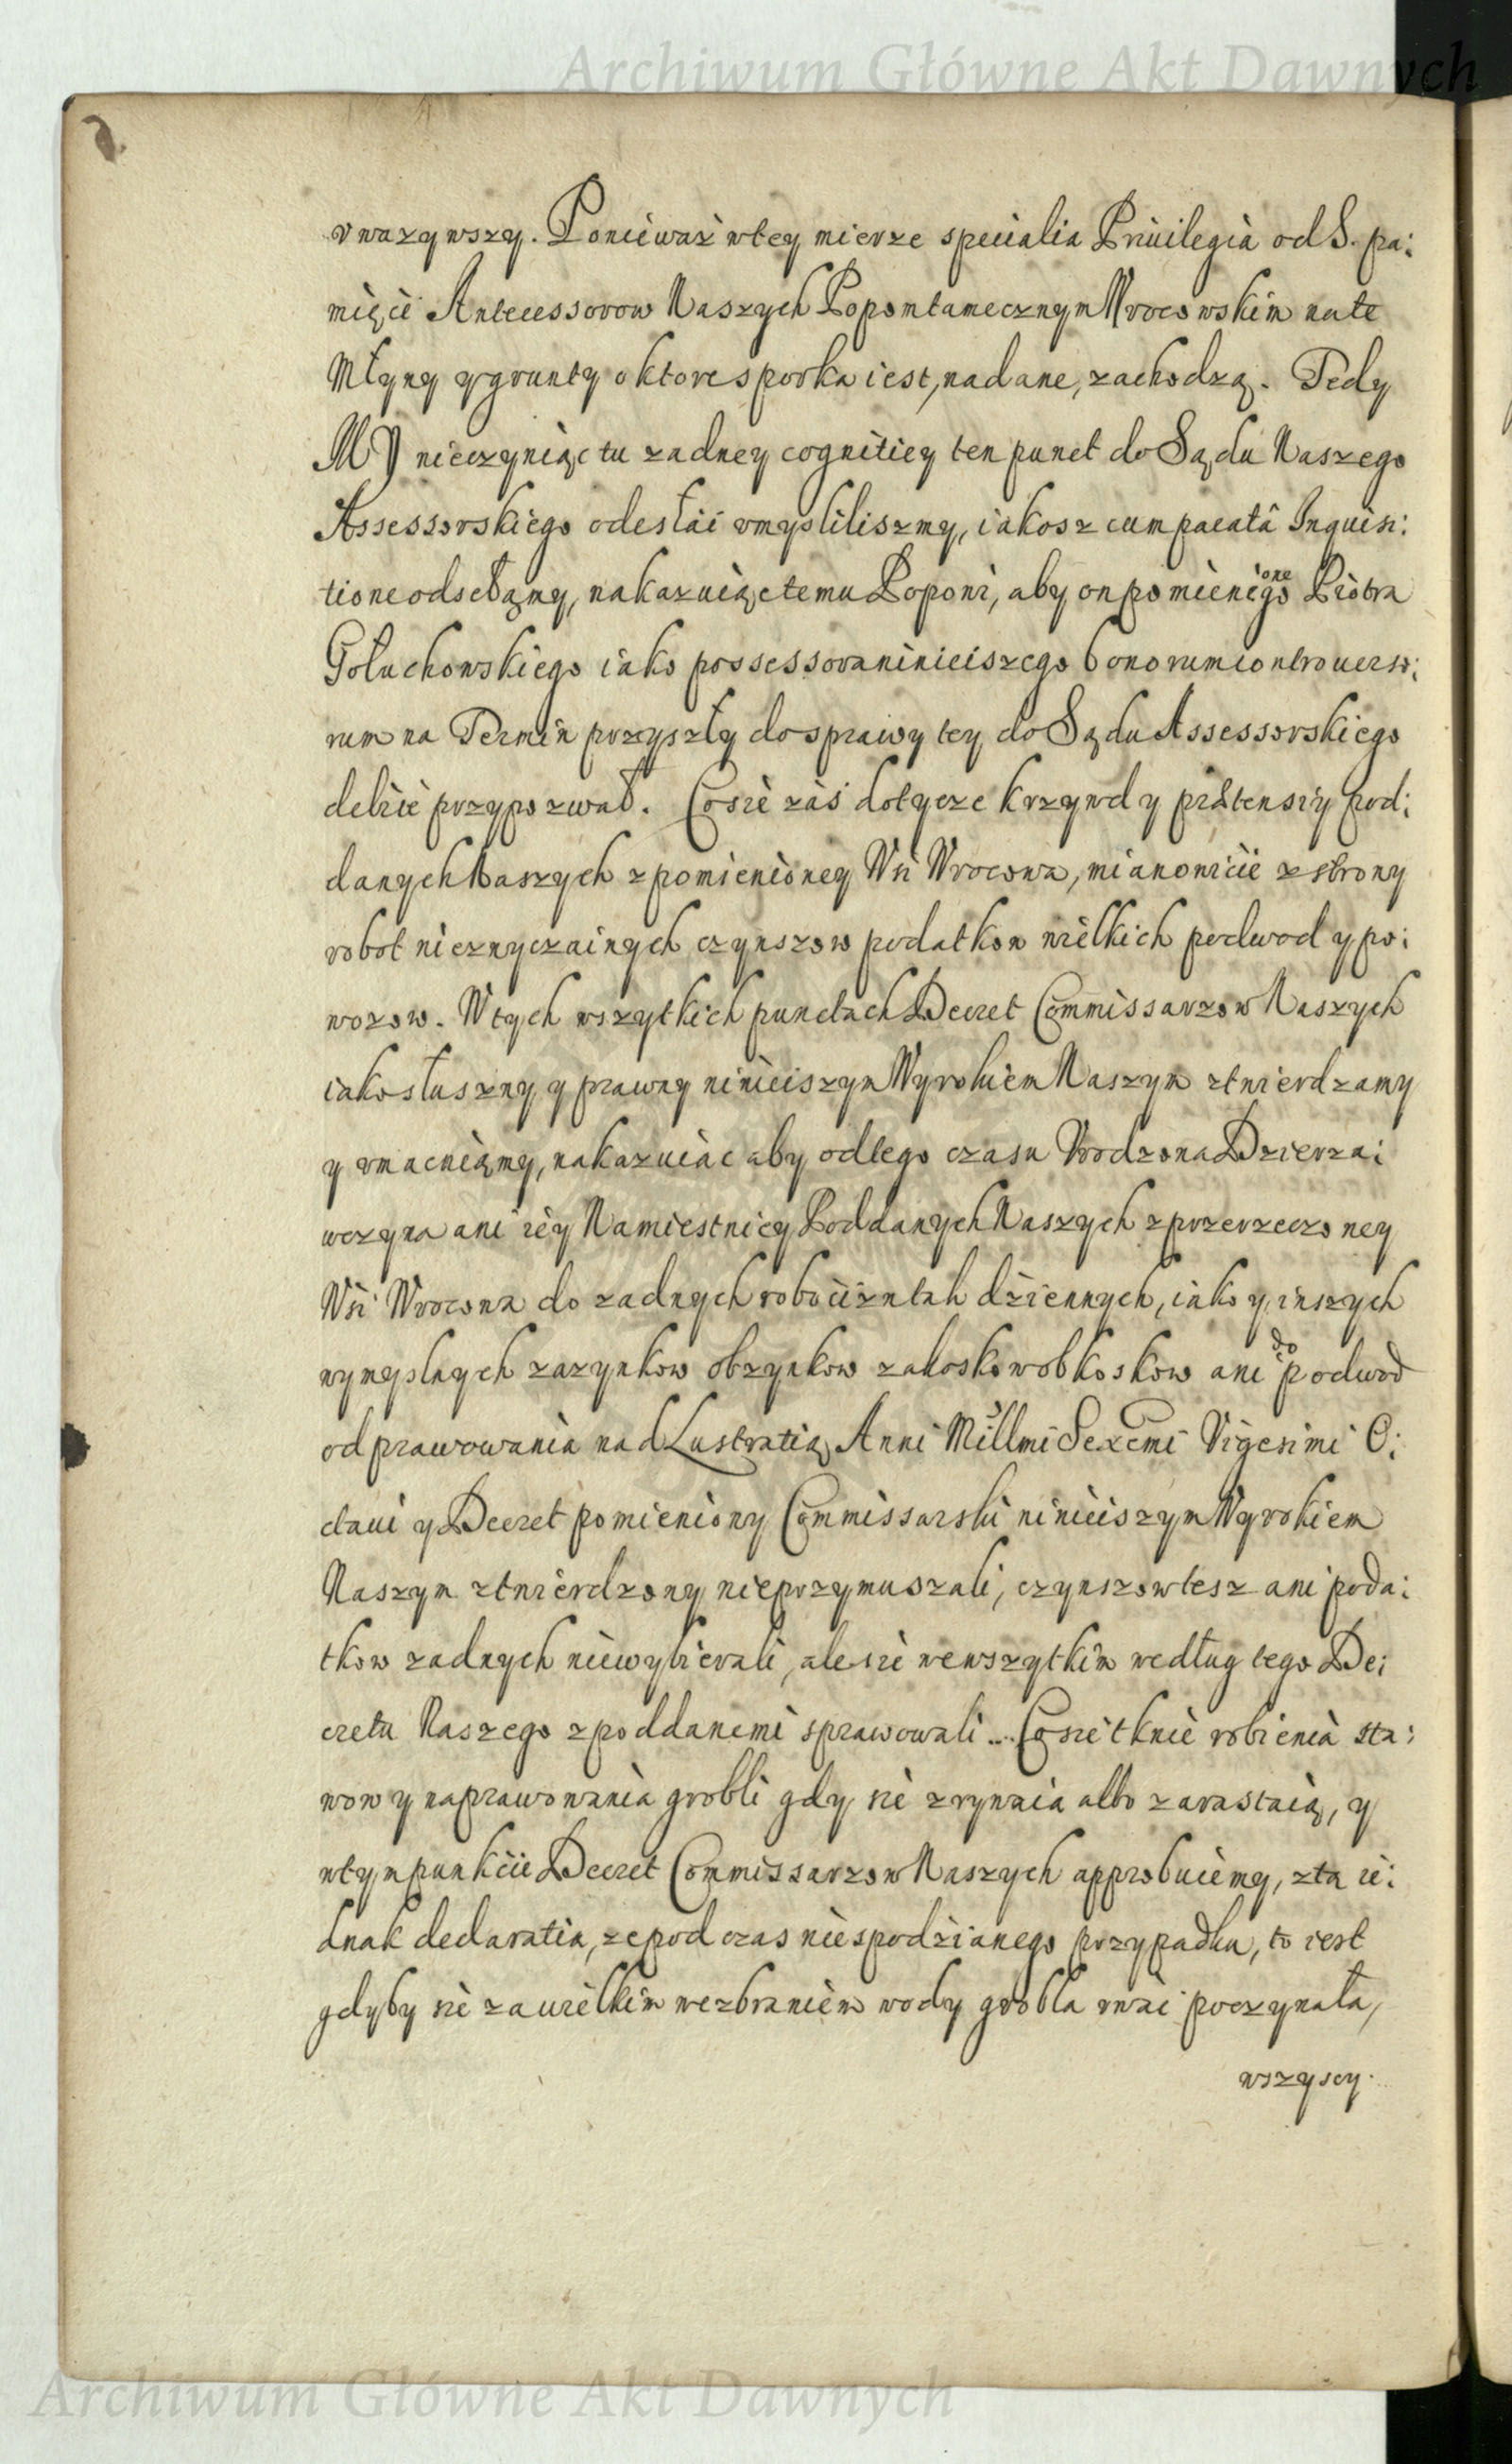 Archiwum Główne Akt Dawnych
vwazywszy. Ponieważ wtey mierze specialia Priuilegia od S. pa:
mięci Antecessorow Naszych Popom tamecznym Wrocowskim na te
Młyny y grunty o ktore sporka iest, nadane, zachodzą. Tedy
MY nieczyniąc tu zadney cognitiey ten punct do Sądu Naszego
Assessorskiego odesłać vmysliliszmy, iakosz cum pacatâ Inquisi:
tione odsełamy, nakazuiąc temu Poponi, aby on pomienionego Piotra
Gołuchowskiego iako possessora ninieiszego bonorum controuerso:
rum na Termin przyszły do sprawy tey do Sądu Assessorskiego
debite przypozwał. Co sie zaś dotycze krzywd y prætensiy pod:
danych Naszych z pomienioney Wsi Wrocowa, mianowicie z strony
robot niezwyczainych czynszow podatkow wielkich podwod y po:
wozow. W tych wszytkich punctach Decret Commissarzow Naszych
iako słuszny y prawny ninieiszym Wyrokiem Naszym ztwierdzamy
y vmacniamy, nakazuiąc aby od tego czasu Vrodzona Dzierza:
wczyna ani iey Namiestnicy Poddanych Naszych z przerzeczoney
Wsi Wrocowa do zadnych robocizn tak dziennych, iako y inszych
wymyslnych zazynkow obzynkow zakoskow obkoskow ani do podwod
odprawowania nad Lustratią Anni Millmi Sexcmi Vigesimi O:
ctaui y Decret pomieniony Commissarski ninieiszym Wyrokiem
Naszym ztwierdzony nieprzymuszali, czynszow tesz ani poda:
tkow zadnych niewybierali, ale sie we wszytkim według tego De:
cretu Naszego z poddanemi sprawowali. Co sie tknie robienia sta:
wow y naprawowania grobli gdy sie zrywaia albo zarastaią, y
w tym punkcie Decret Commissarzow Naszych approbuiemy, z ta ie:
dnak declaratia, ze podczas niespodzianego przypadku, to iest
gdyby sie za wielkim wezbraniem wody grobla rwać poczynała,
wszyscy.
Archiwum Główne Akt Dawnych